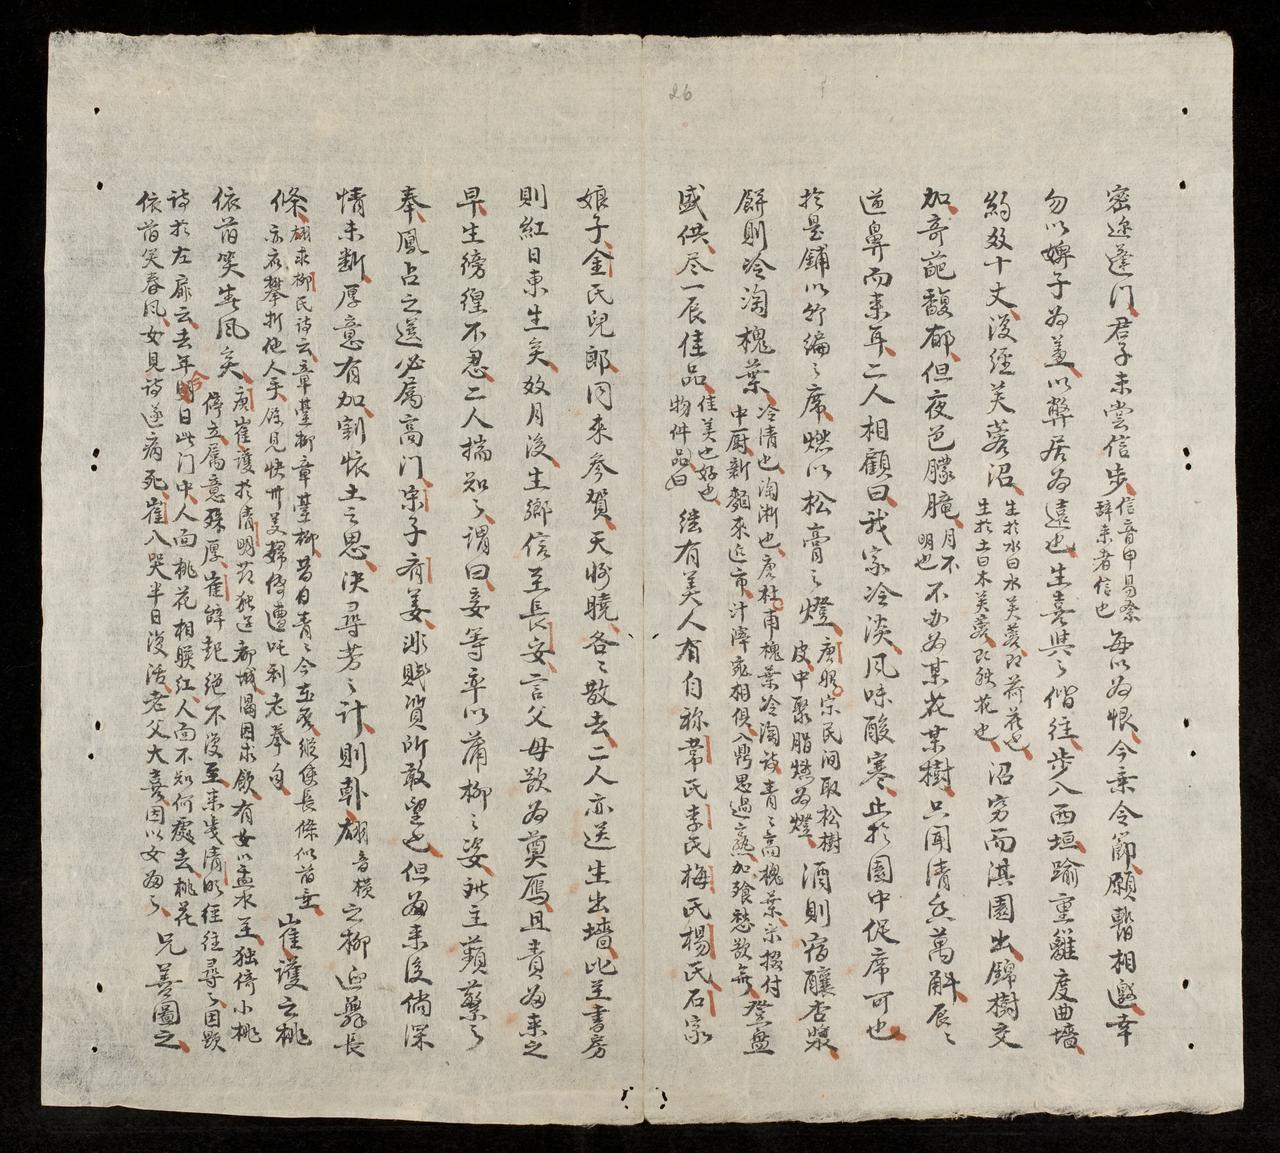 26
密迩蓬门君子未尝信步信音申易系辞来者信也每以为恨今乘令節願暫相邀幸
勿以婢子为羞以弊居为遠也生喜與之偕往步入西垣踰重離度曲墙
約数十丈後經芙蓉沼生於水曰水芙蓉即荷花也生於土曰木芙蓉即拒花也沼穷而淇園出錦樹交
加奇葩馥郁但夜色朦朧月不明也不办为某花某樹只聞清香萬斛辰〻
逆鼻而来耳二人相顧曰我家冷淡风味酸寒止於園中促席可也
於是鋪以竹编之席燃以松膏之燈唐昭宗民间取松樹皮中聚脂燃为燈酒則宿釀杏漿
餅則冷淘槐葉冷清也淘淅也唐杜甫槐葉冷淘詩青〻高槐葉采掇付中厨新麵來近市汁滓宛相俱入鼎思過熟加飱愁欲無登盤
盛供尽一辰佳品佳美也好也物件品曰继有美人有自称韋氏李氏梅氏楊氏石家
娘子金氏兒郎同来参賀天将曉各〻散去二人亦送生出墙比至書房
則紅日東生矣数月後生鄉信至長安言父母欲为奠鴈且責为来之
早生徬徨不忍二人揣知之谓曰妾等卒以蒲柳之姿玷主蘋蘩之
奉鳳占之選必属高门宋子齊姜非賎質所敢望也但为来後倘深
情未断厚意有加割怀土之思决尋芳之計則韩翃音横之柳迎舞長
條翃求柳氏詩云章臺柳章臺柳昔日青〻今在否縱使長條似旧垂亦应攀折他人手後見快卅美婦侍遭吒利老拳句崔護之桃
依旧笑春风矣唐崔護於清明节独遊都城渴因求飲有女以盂水至独倚小桃停立属意殊厚崔辞起绝不復至来岁清明径往尋之因題
詩於左扉云去年今日此门中人面桃花相暎红人面不知何處去桃花
依旧笑春风女見詩遂病死崔入哭半日復活老父大喜因以女为之兄善圖之